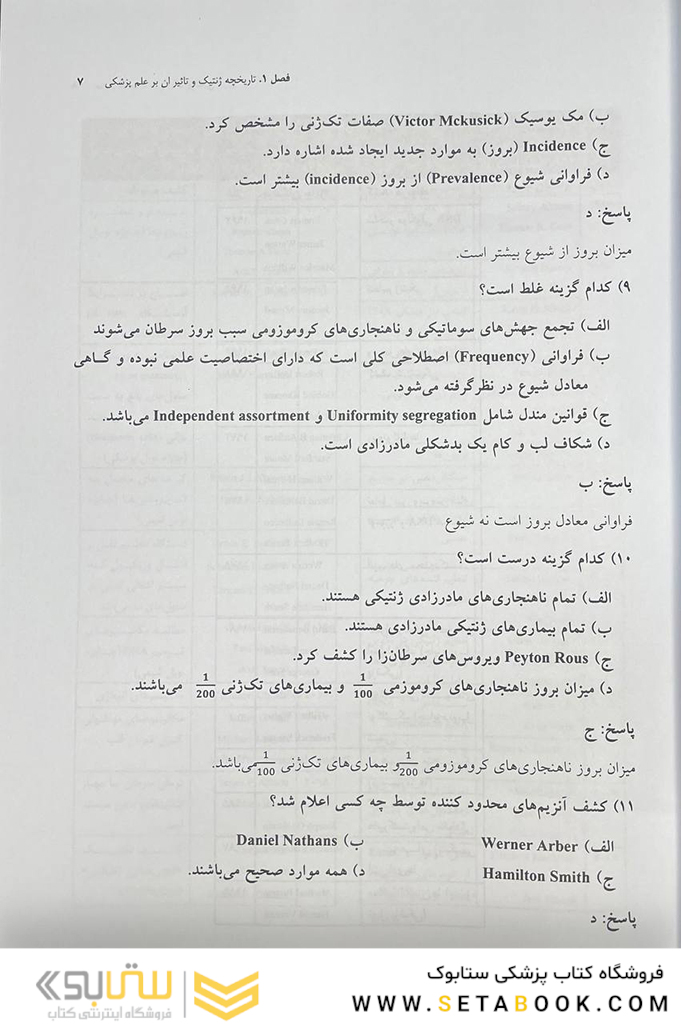 فصل ۱. تاریخچه ژنتیک و تاثیر ان بر علم پزشکی ۷
ب) مک یوسیک (Victor Mckusick) صفات تک‌ژنی را مشخص کرد.
ج) Incidence (بروز) به موارد جدید ایجاد شده اشاره دارد.
د) فراوانی شیوع (Prevalence) از بروز (incidence) بیشتر است.
پاسخ: د
میزان بروز از شیوع بیشتر است.
۹) کدام گزینه غلط است؟
الف) تجمع جهش‌های سوماتیکی و ناهنجاری‌های کروموزومی سبب بروز سرطان می‌شوند
ب) فراوانی (Frequency) اصطلاحی کلی است که دارای اختصاصیت علمی نبوده و گـاهی
معادل شیوع در نظرگرفته می‌شود.
ج) قوانین مندل شامل Uniformity segregation و Independent assortment می‌باشد.
د) شکاف لب و کام یک بدشکلی مادرزادی است.
پاسخ: ب
فراوانی معادل بروز است نه شیوع
۱۰) کدام گزینه درست است؟
الف) تمام ناهنجاری‌های مادرزادی ژنتیکی هستند.
ب) تمام بیماری‌های ژنتیکی مادرزادی هستند.
ج) Peyton Rous ویروس‌های سرطان‌زا را کشف کرد.
د) میزان بروز ناهنجاری‌های کروموزمی 1/100 و بیماری‌های تک‌ژنی 1/200 می‌باشند.
پاسخ: ج
میزان بروز ناهنجاری‌های کروموزومی 1/200 و بیماری‌های تک‌ژنی 1/100 می‌باشد.
۱۱) کشف آنزیم‌های محدود کننده توسط چه کسی اعلام شد؟
الف) Werner Arber ب) Daniel Nathans
ج) Hamilton Smith د) همه موارد صحیح می‌باشند.
پاسخ: د
فروشگاه کتاب پزشکی ستابوک
WWW.SETABOOK.COM
ستابوک
فروشگاه اینترنتی کتاب